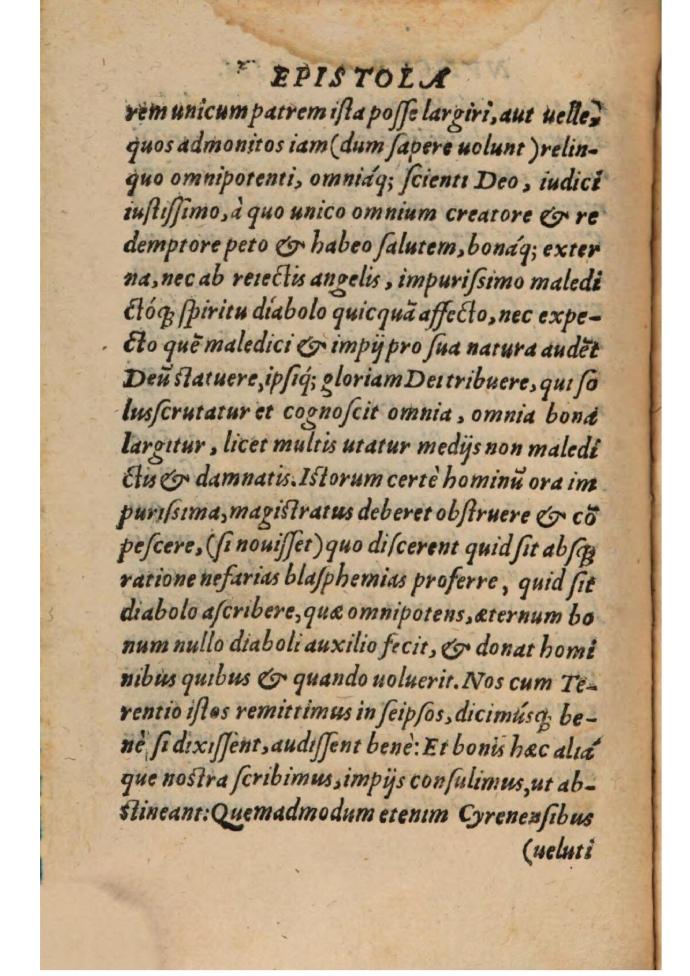 EPISTOLA
rem unicum patrem ista posse largiri, aut uelle,
quos admonitos iam (dum sapere uolunt) relin-
quo omnipotenti, omniáq; scienti Deo, iudici
iustissimo, à quo unico omnium creatore & re
demptore peto & habeo salutem, bonáq; exter
na, nec ab reiectis angelis, impurissimo maledi
ctóq; spiritu diabolo quicquã affecto, nec expe-
cto quẽ maledici & impij pro sua natura audẽt
Deũ statuere, ipsiq́; gloriam Dei tribuere, qui so
lus scrutatur et cognoscit omnia, omnia bona
largitur, licet multis utatur medijs non maledi
ctis & damnatis. Istorum certè hominũ ora im
purissima, magistratus deberet obstruere & cõ
pescere, (si nouisset) quo discerent quid sit absq;
ratione nefarias blasphemias proferre, quid sit
diabolo ascribere, quæ omnipotens, æternum bo
num nullo diaboli auxilio fecit, & donat homi
nibus quibus & quando uoluerit. Nos cum Te-
rentio istos remittimus in seipsos, dicimúsq; be-
nè si dixissent, audissent benè: Et bonis hæc aliá
que nostra scribimus, impijs consulimus, ut ab-
stineant: Quemadmodum etenim Cyrenensibus
(ueluti